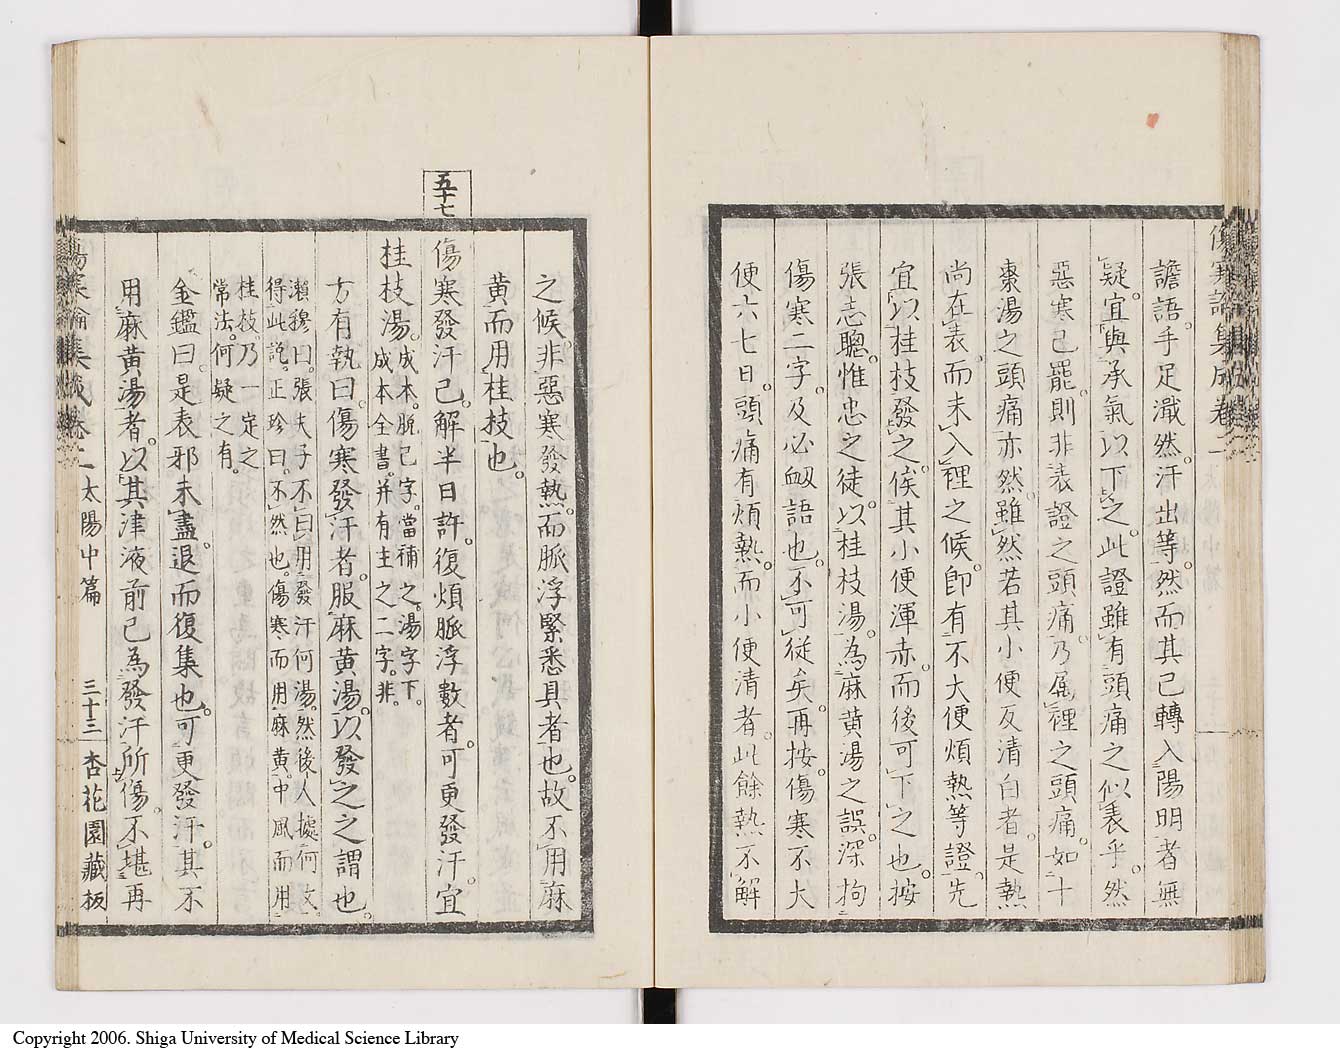 譫語。手足濈然汗出等。然而其已轉入陽明者。無
疑。宜與承氣以下之。此證雖有頭痛之似表乎。然
惡寒已罷。則非表證之頭痛。乃屬裡之頭痛。如十
棗湯之頭痛亦然。雖然若其小便反清白者。是熱
尚在表。而未入裡之候。卽有不大便煩熱等證。先
宜以桂枝發之。俟其小便渾赤。而後可下之也。按
張志聰。惟忠之徒。以桂枝湯。為麻黄湯之誤。深拘
傷寒二字。及必衂語也。不可從矣。再按。傷寒不大
便六七日。頭痛有煩熱。而小便清者。此餘熱不解
之候。非惡寒發熱。而脈浮緊悉具者也。故不用麻
黄而用桂枝也。
五十七
傷寒發汗已。解半日許。復煩脈浮數者。可更發汗。宜
桂枝湯。成本。脫已字。當補之。湯字下。
成本全書。并有主之二字。非。
方有執曰。傷寒發汗者。服麻黄湯。以發之之謂也。
瀨穆曰。張夫子不曰用發汗何湯。然後人據何文。
得此說。正珍曰。不然也。傷寒而用麻黄。中風而用
桂枝乃一定之
常法。何疑之有。
金鑑曰。是表邪未盡。退而復集也。可更發汗。其不
用麻黄湯者。以其津液前已為發汗所傷。不堪再
太陽中篇 三十三 杏花園藏板